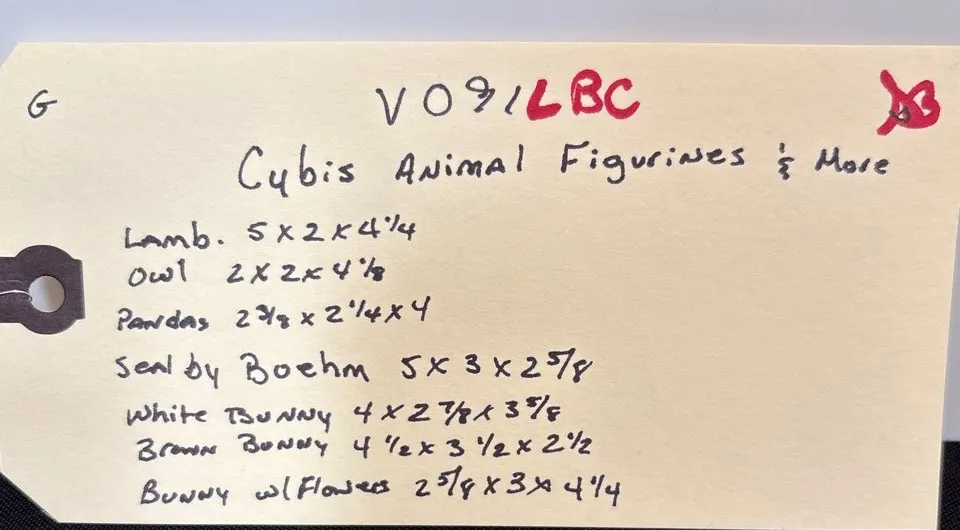 G V091LBC
Cybis Animal Figurines & More
Lamb. 5 x 2 x 4 1/4
Owl 2 x 2 x 4 1/8
Pandas 2 3/8 x 2 1/4 x 4
Seal by Boehm 5 x 3 x 2 5/8
White Bunny 4 x 2 7/8 x 3 5/8
Brown Bunny 4 1/2 x 3 1/2 x 2 1/2
Bunny w/ Flowers 2 5/8 x 3 x 4 1/4